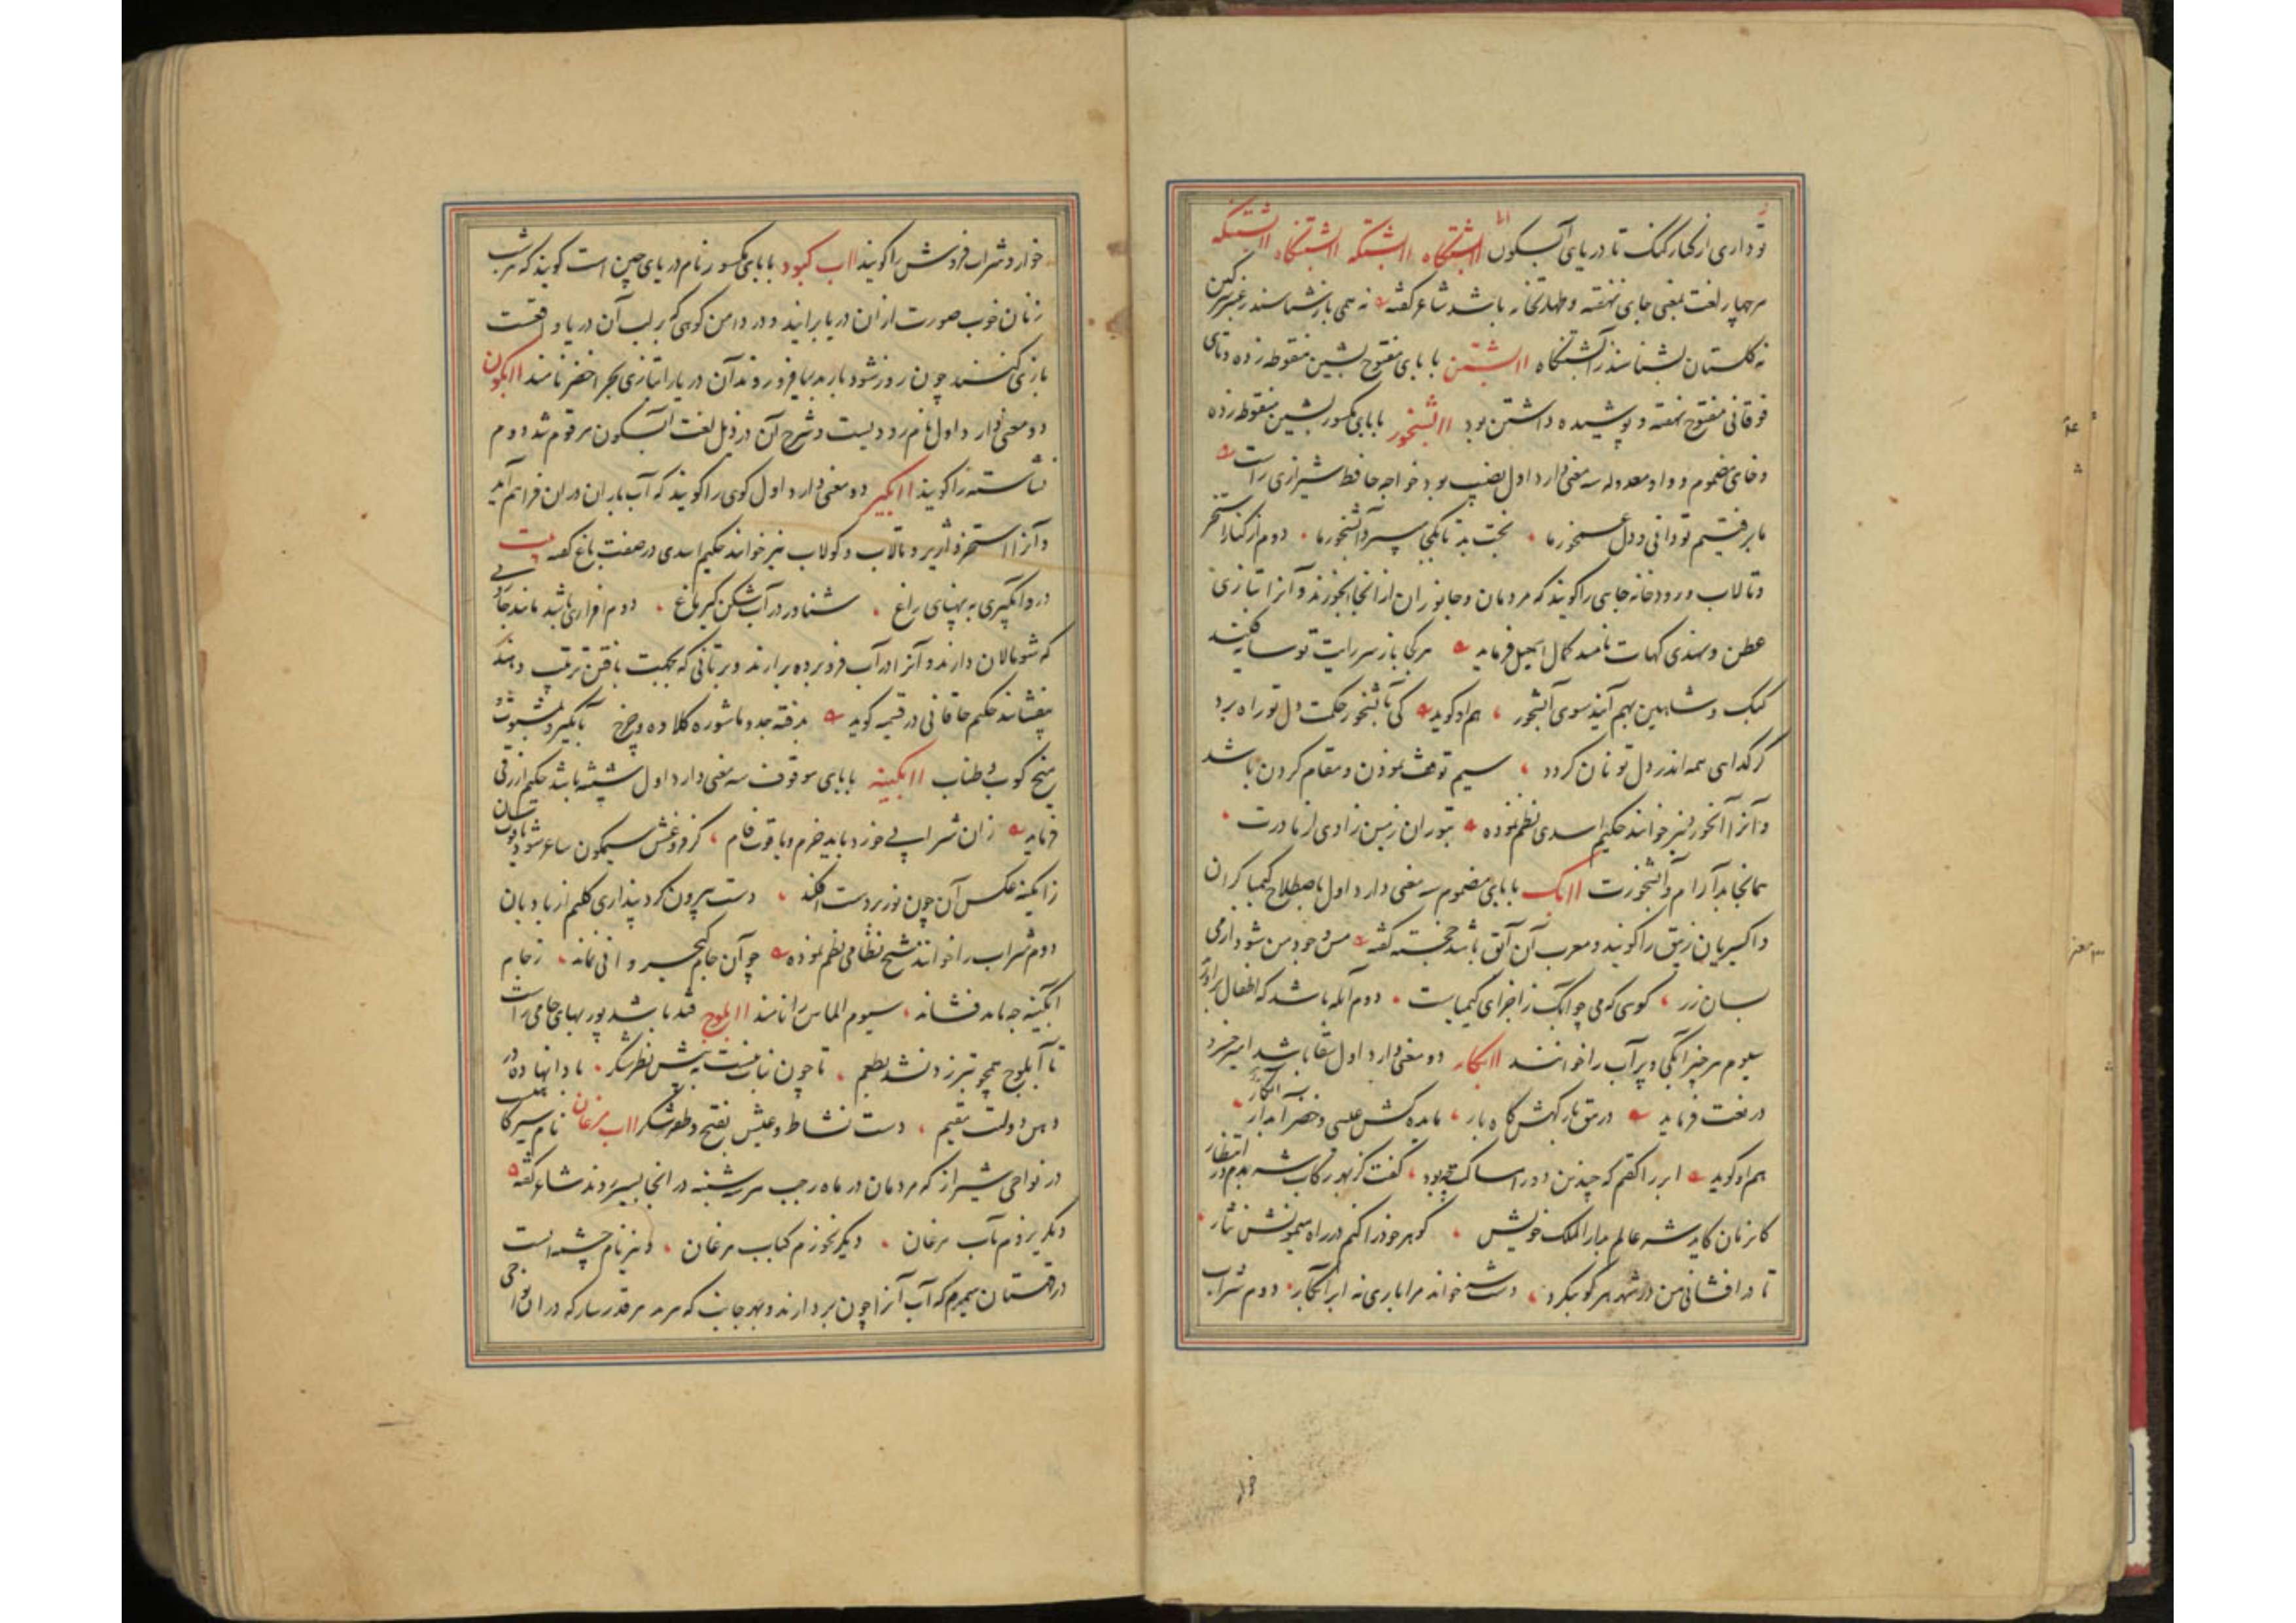 تو داری از کنار گنگ تا دریای آبسکون اابشتگاه ااابشتگه ااابشتنگاه ااابشتنگه
هر چهار لغت بمعنی جای نهفته و طهارتخانه باشد شاعر گفته نه همی بازشناسند ز عنبر سرگین
نه گلستان بشناسند ز آبشتنگاه ااابشتن با بای مفتوح بشین منقوطه زده و تای
فوقانی مفتوح نهفته و پوشیده داشتن بود ااابشخور با بای مکسور بشین منقوطه زده
و خای مضموم و واو معدوله سه معنی دارد اول نصیب بود خواجه حافظ شیرازی راست
ما برفتیم تو دانی و دل غمخور ما بخت بد تا بکجا میبرد آبشخور ما دوم از کنار استخر
و تالاب و رودخانه جایی را گویند که مردمان و جانوران از انجا آبخورند و آنرا بتازی
عطن و بهندی گهات نامند کمال اسمعیل فرماید هر کجا باز سر رایت تو سایه فکند
کبک و شاهین بهم آیند سوی آبشخور هم او گوید کی بآبشخور حکمت دل تو راه برد
گر گدایی همه اندر دل تو نان گردد سیم توقف نمودن و مقام کردن باشد
و آنرا آبخور نیز خوانند حکیم اسدی نظم نموده بتوران زمین زادی از مادرت
همانجا بد آرام و آبشخورت ااابک با بای مضموم سه معنی دارد اول باصطلاح کیمیاگران
و اکسیریان زیبق را گویند و معرب آن آبق باشد خجسته گفته مس وجود من شود از می
بسان زر گویی که می چو ابک ز اجزای کیمیاست دوم آبله باشد که اطفال برآورند
سیوم هر چیز آبکی و پر آب را خوانند ااابکار دو معنی دارد اول سقا باشد امیر خسرو
در نعت فرماید در بارکهش کاه بار مایده کش عیسی و خضر آبدار
هم او گوید ابر را گفتم که چندین دور امساکت چه بود گفت کز بهر رکاب شه بدم در انتظار
کاز زمان کاید شه عالم بدارالملک خویش گوهر خود را کنم در راه میمونش نثار
تا در افشانی من در شهر هر کو بنگرد دست شه خواند مرا باری نه ابر آبکار دوم شراب
خوار و شراب فروش را گویند ااب کبود با بای مکسور نام دریای چین است گویند که هر شب
زنان خوب صورت از ان دریا برآیند و در دامن کوهی که بر لب آن دریا واقعست
بازی کنند چون روز شود باز بدریا فرو روند آن دریا را بتازی بحر اخضر نامند ااابگون
دو معنی دارد اول نام رودیست و شرح آن در ذیل لغت آبسکون مرقوم شد دوم
نشاسته را گویند ااابگیر دو معنی دارد اول گوی را گویند که آب باران در ان فراهم آید
و آنرا استخر و آژیر و تالاب و کولاب نیز خوانند حکیم اسدی در صفت باغ گفته بیت
در و آبگیری به پهنای راغ شناور در آب شکن گیر ماغ دوم افزاری باشد مانند جاروبی
که شومالان دارند و آنرا در آب فرو برده برآرند و بر تانی که بجهت بافتن ترتیب دهند
بیفشانند حکیم خاقانی در قسمیه گوید بدفته جد و ماشوره کلاده و چرخ بآبگیر و بمشتوت و
میخ کوب و طناب ااابگینه با بای موقوف سه معنی دارد اول شیشه باشد حکیم ازرقی
فرماید زان شرابی خورد باید خرم و یاقوت فام کز فروغش سیمگون ساعر شود یاقوت سان
ز آبگینه عکس آن چون نور بر دست افکند دست بیرون کرد پنداری کلیم از بادبان
دوم شراب را خوانند شیخ نظامی نظم نموده چو آن جام کیخسرو آنی نماند ز جام
ابگینه چه باید فشاند سیوم الماس را نامند ااابلوج قند باشد پور بهای جامی راست
تا آبلوج همچو تبرزد نشد بطعم تا چون نبات نیست به پیش نظر شکر بادا نهاده در
دهن دولت مقیم دست نشاط و عیش بفتح و ظفر شکر ااب مرغان نام سیرگاهیست
در نواحی شیراز که مردمان در ماه رجب هر سه شنبه در انجا بسیر روند شاعر گفته
دیگر نروم بآب مرغان دیگر نخورم کباب مرغان و نیز نام چشمه ایست
در قهستان سمیرم که آب آنرا چون بردارند و بهر جانب که برند هر قدر سار که در ان نواحی